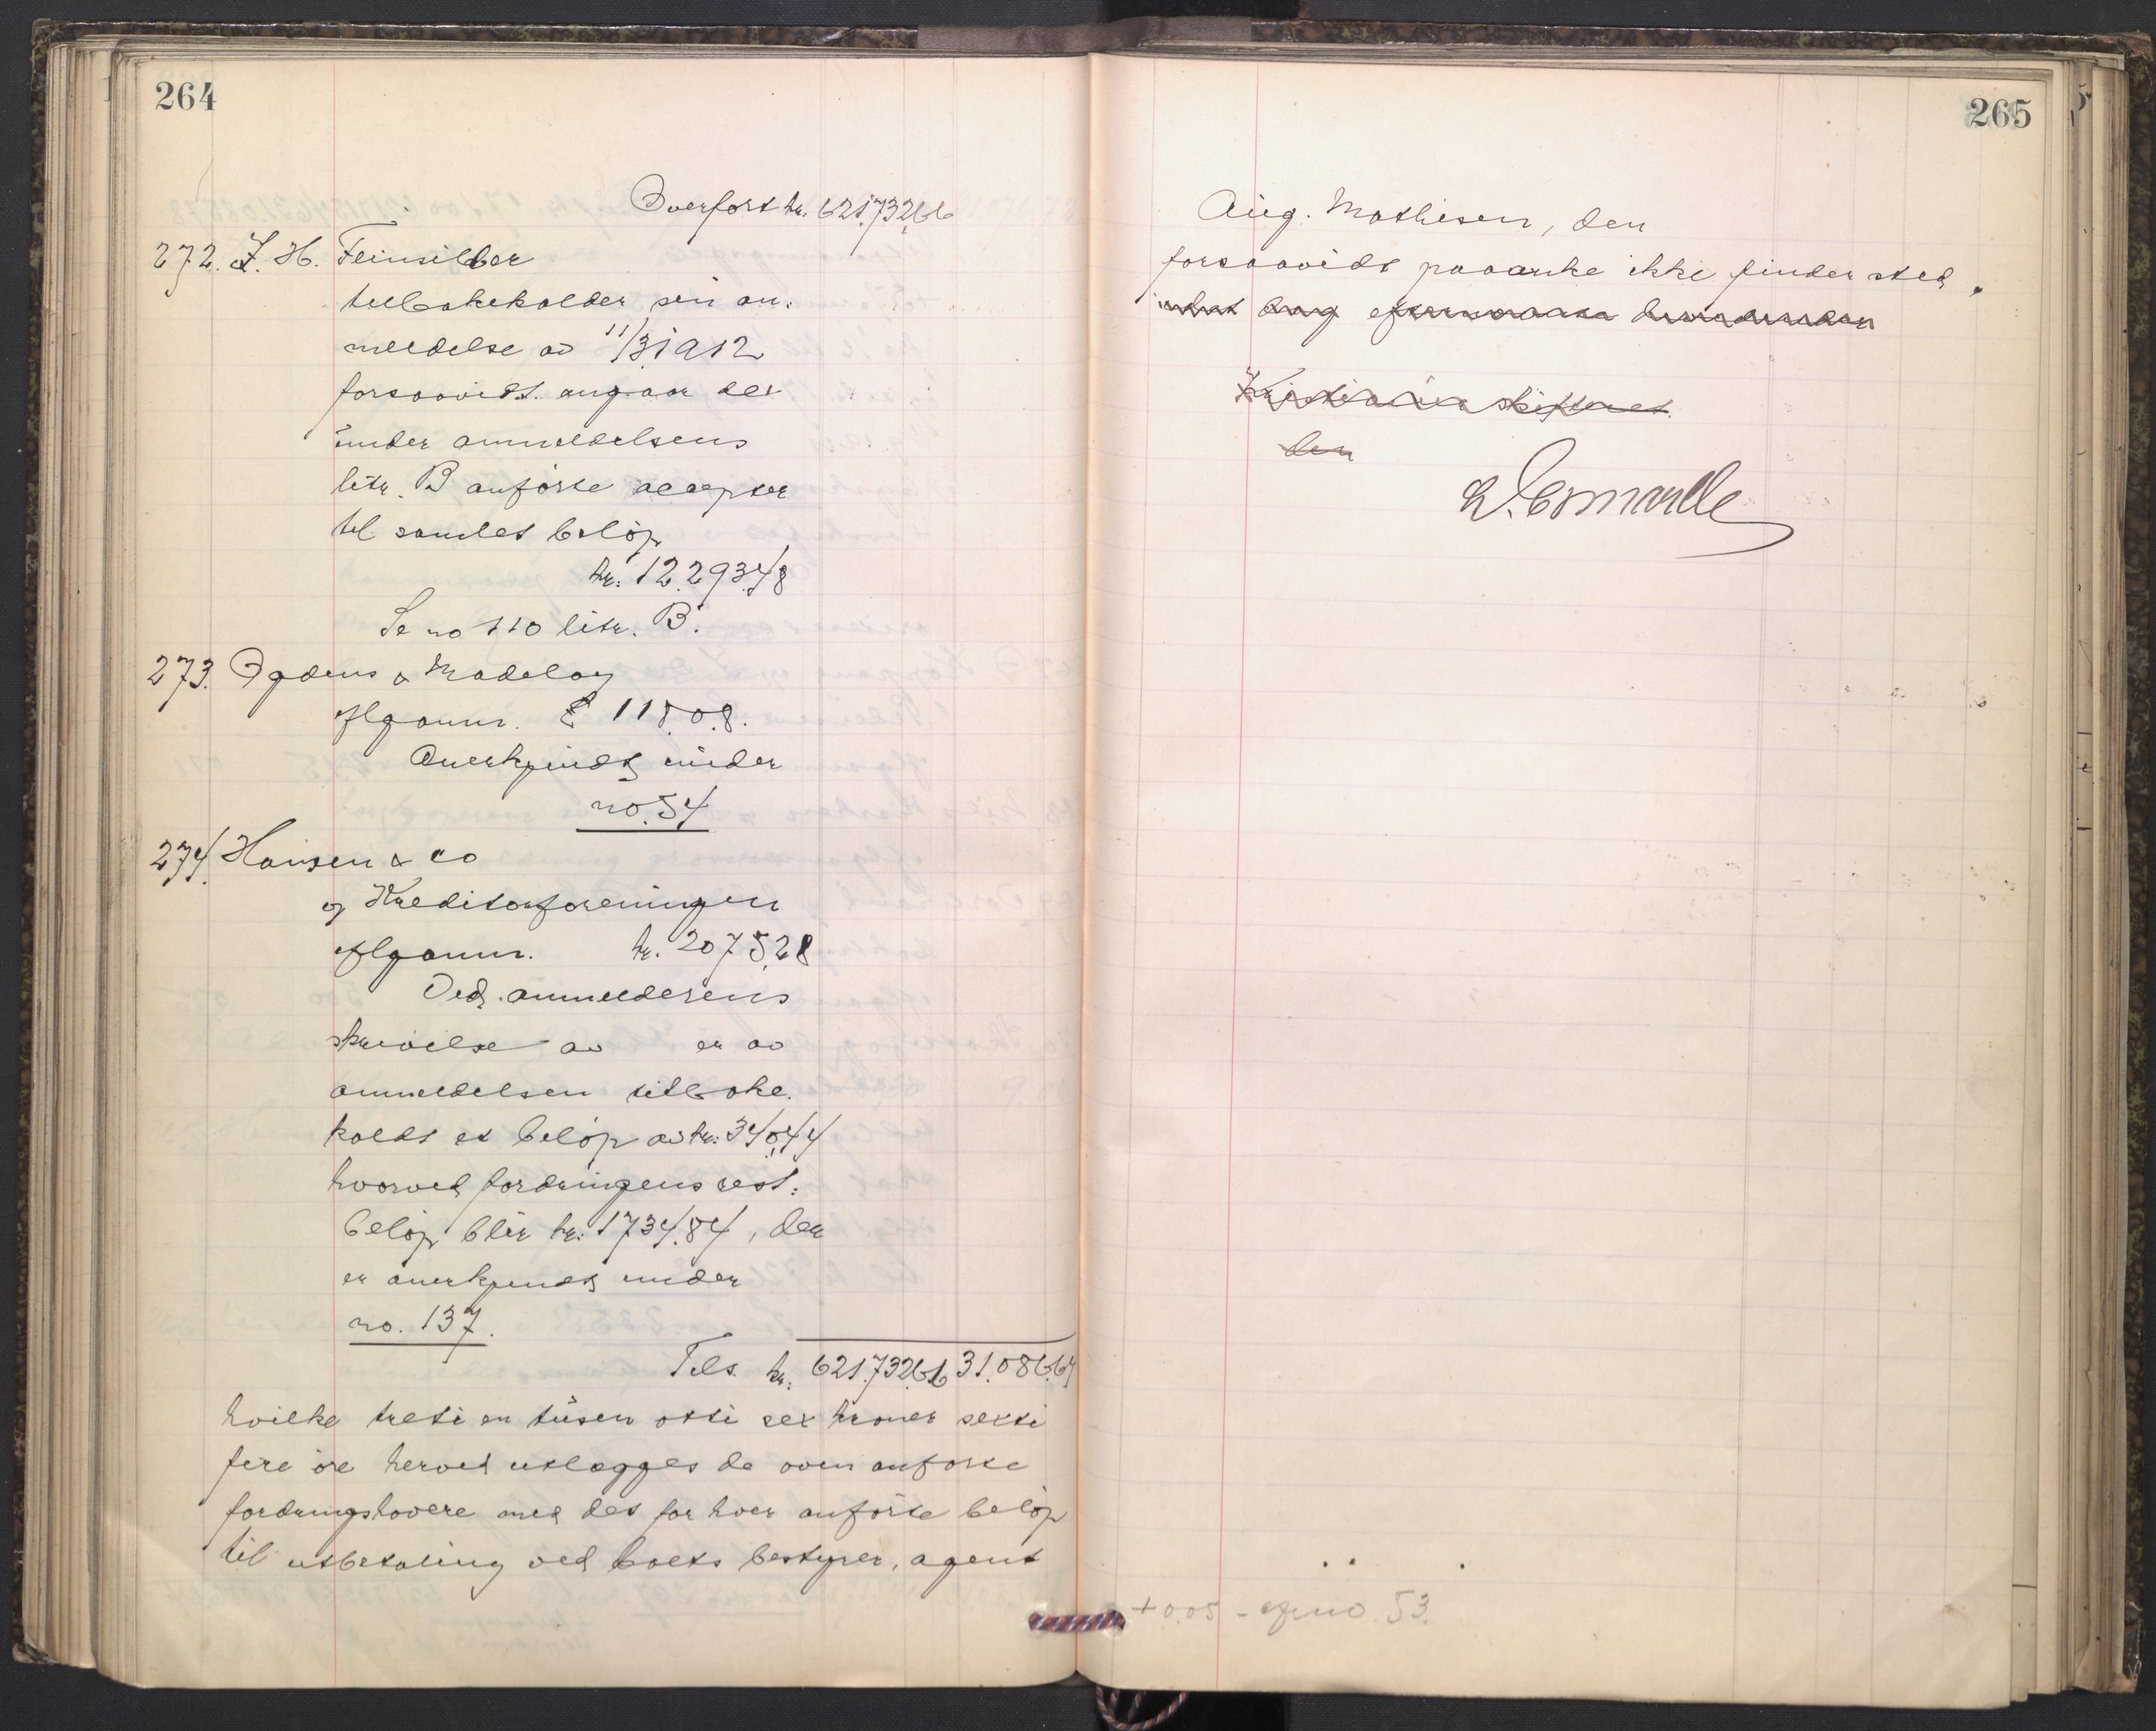 264
Overført kr. 621.732,66
272. I. H. Feinsilber
tilbakekalder sin an-
meldelse av 11/3 1912
forsaavidt angaar de
under anmeldelsens
litr. B anførte accepter
til samlet beløp
kr. 12.293.48
Se no 110 litr. B.
273. Ogdens & Madeley
iflg anm. £ 118.0.8.
Anerkjendt under
no. 54
274. Hansen & co
og Kreditorforeningen
iflg anm. kr. 2075,28
Ved anmelderens
skrivelse av er av
anmeldelsen tilbake-
kaldt et beløp av kr: 340,44
hvorved fordringens rest-
beløp blir kr. 1734.84, der
er anerkjendt under
no. 137.
Tils. kr: 621.732,66 31.086.64
hvilke treti en tusen otti sex kroner sexti
fire øre herved utlægges de oven anførte
fordringshavere med det for hver anførte beløp
til utbetaling ved boets bestyrer, agent
265
Aug. Mathisen, den
forsaavidt paaanke ikke finder sted.
Kristiania skifteret
den
+ 0.05 - no. 53.